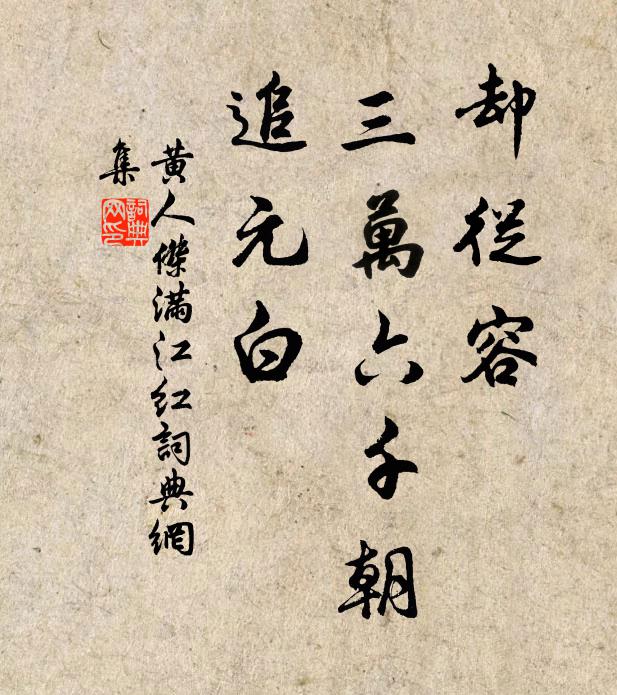 却從容
三萬六千朝
追元白
黄人傑滿江紅詞典網
集
詞典
网印